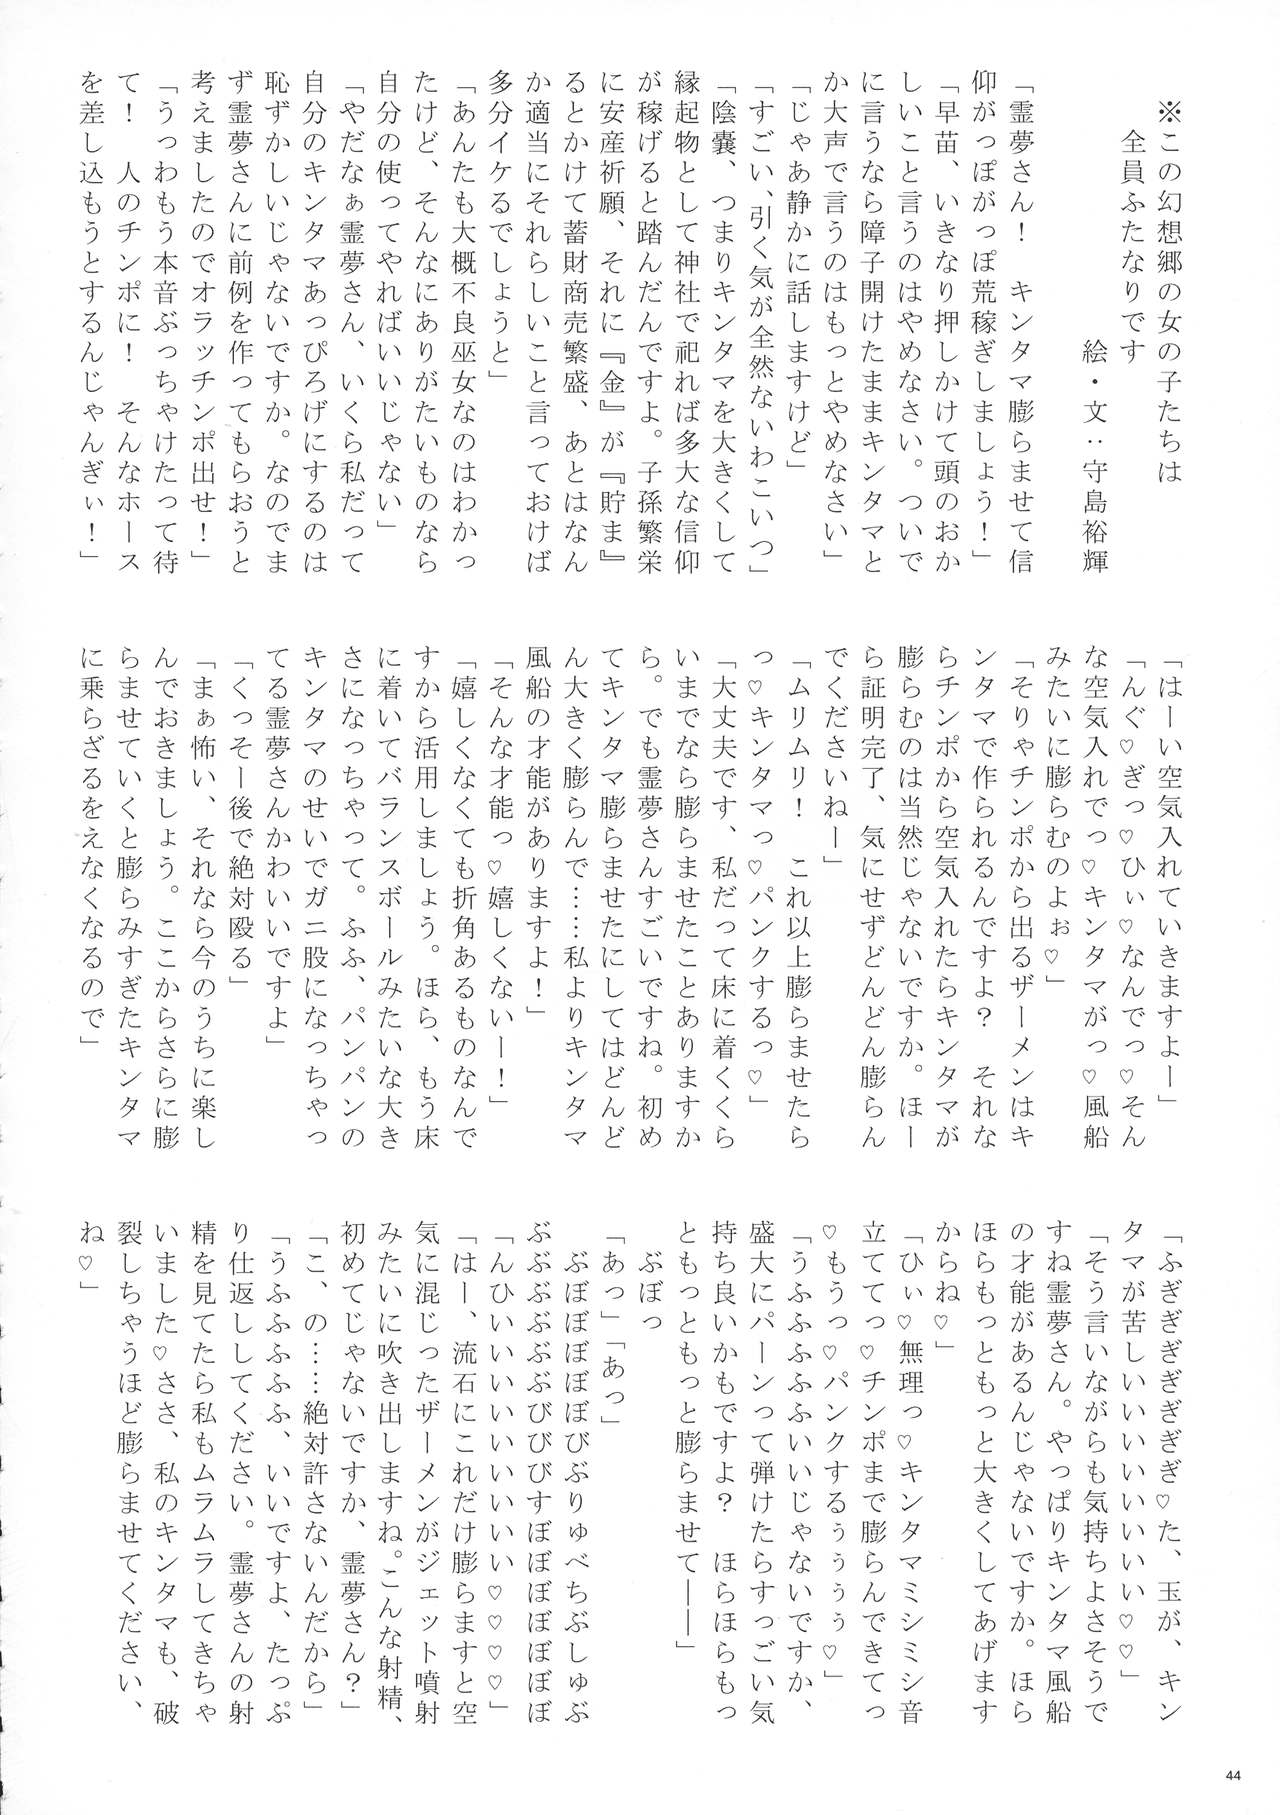 ※この幻想郷の女の子たちは
全員ふたなりです
絵・文：守島裕輝
「霊夢さん！　キンタマ膨らませて信
仰がっぽがっぽ荒稼ぎしましょう！」
「早苗、いきなり押しかけて頭のおか
しいこと言うのはやめなさい。ついで
に言うなら障子開けたままキンタマと
か大声で言うのはもっとやめなさい」
「じゃあ静かに話しますけど」
「すごい、引く気が全然ないわこいつ」
「陰嚢、つまりキンタマを大きくして
縁起物として神社で祀れば多大な信仰
が稼げると踏んだんですよ。子孫繁栄
に安産祈願、それに『金』が『貯ま』
るとかけて蓄財商売繁盛、あとはなん
か適当にそれらしいこと言っておけば
多分イケるでしょうと」
「あんたも大概不良巫女なのはわかっ
たけど、そんなにありがたいものなら
自分の使ってやればいいじゃない」
「やだなぁ霊夢さん、いくら私だって
自分のキンタマあっぴろげにするのは
恥ずかしいじゃないですか。なのでま
ず霊夢さんに前例を作ってもらおうと
考えましたのでオラッチンポ出せ！」
「うっわもう本音ぶっちゃけたって待
て！　人のチンポに！　そんなホース
を差し込もうとするんじゃんぎぃ！」
「はーい空気入れていきますよー」
「んぐ♡ぎっ♡ひぃ♡なんでっ♡そん
な空気入れでっ♡キンタマがっ♡風船
みたいに膨らむのよぉ♡」
「そりゃチンポから出るザーメンはキ
ンタマで作られるんですよ？　それな
らチンポから空気入れたらキンタマが
膨らむのは当然じゃないですか。ほー
ら証明完了、気にせずどんどん膨らん
でくださいねー」
「ムリムリ！　これ以上膨らませたら
っ♡キンタマっ♡パンクするっ♡」
「大丈夫です、私だって床に着くくら
いまでなら膨らませたことありますか
ら。でも霊夢さんすごいですね。初め
てキンタマ膨らませたにしてはどんど
ん大きく膨らんで……私よりキンタマ
風船の才能がありますよ！」
「そんな才能っ♡嬉しくないー！」
「嬉しくなくても折角あるものなんで
すから活用しましょう。ほら、もう床
に着いてバランスボールみたいな大き
さになっちゃって。ふふ、パンパンの
キンタマのせいでガニ股になっちゃっ
てる霊夢さんかわいいですよ」
「くっそー後で絶対殴る」
「まぁ怖い、それなら今のうちに楽し
んでおきましょう。ここからさらに膨
らませていくと膨らみすぎたキンタマ
に乗らざるをえなくなるので」
「ふぎぎぎぎぎぎ♡た、玉が、キン
タマが苦しいいいいいいい♡♡」
「そう言いながらも気持ちよさそうで
すね霊夢さん。やっぱりキンタマ風船
の才能があるんじゃないですか。ほら
ほらもっともっと大きくしてあげます
からね♡」
「ひぃ♡無理っ♡キンタマミシミシ音
立ててっ♡チンポまで膨らんできてっ
♡もうっ♡パンクするぅぅぅぅ♡」
「うふふふふいいじゃないですか、
盛大にパーンって弾けたらすっごい気
持ち良いかもですよ？　ほらほらもっ
ともっともっと膨らませて――」
ぶぼっ
「あっ」「あっ」
ぶぼぼぼぼぼびぶりゅべちぶしゅぶ
ぶぶぶぶぶぶびびびすぼぼぼぼぼぼぼ
「んひいいいいいいいい♡♡♡♡」
「はー、流石にこれだけ膨らますと空
気に混じったザーメンがジェット噴射
みたいに吹き出しますね。こんな射精、
初めてじゃないですか、霊夢さん？」
「こ、の……絶対許さないんだから」
「うふふふふ、いいですよ、たっぷ
り仕返ししてください。霊夢さんの射
精を見てたら私もムラムラしてきちゃ
いました♡ささ、私のキンタマも、破
裂しちゃうほど膨らませてください、
ね♡」
44